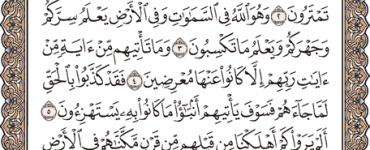 تَمْتَرُونَ ٢ وَهُوَ ٱللَّهُ فِى ٱلسَّمَٰوَٰتِ وَفِى ٱلْأَرْضِ يَعْلَمُ سِرَّكُمْ
وَجَهْرَكُمْ وَيَعْلَمُ مَا تَكْسِبُونَ ٣ وَمَا تَأْتِيهِم مِّنْ ءَايَةٍ مِّنْ
ءَايَٰتِ رَبِّهِمْ إِلَّا كَانُوا۟ عَنْهَا مُعْرِضِينَ ٤ فَقَدْ كَذَّبُوا۟ بِٱلْحَقِّ
لَمَّا جَآءَهُمْ فَسَوْفَ يَأْتِيهِمْ أَنۢبَٰٓؤُا۟ مَا كَانُوا۟ بِهِۦ يَسْتَهْزِءُونَ ٥
أَلَمْ يَرَوْا۟ كَمْ أَهْلَكْنَا مِن قَبْلِهِم مِّن قَرْنٍ مَّكَّنَّٰهُمْ فِى ٱلْأَرْضِ